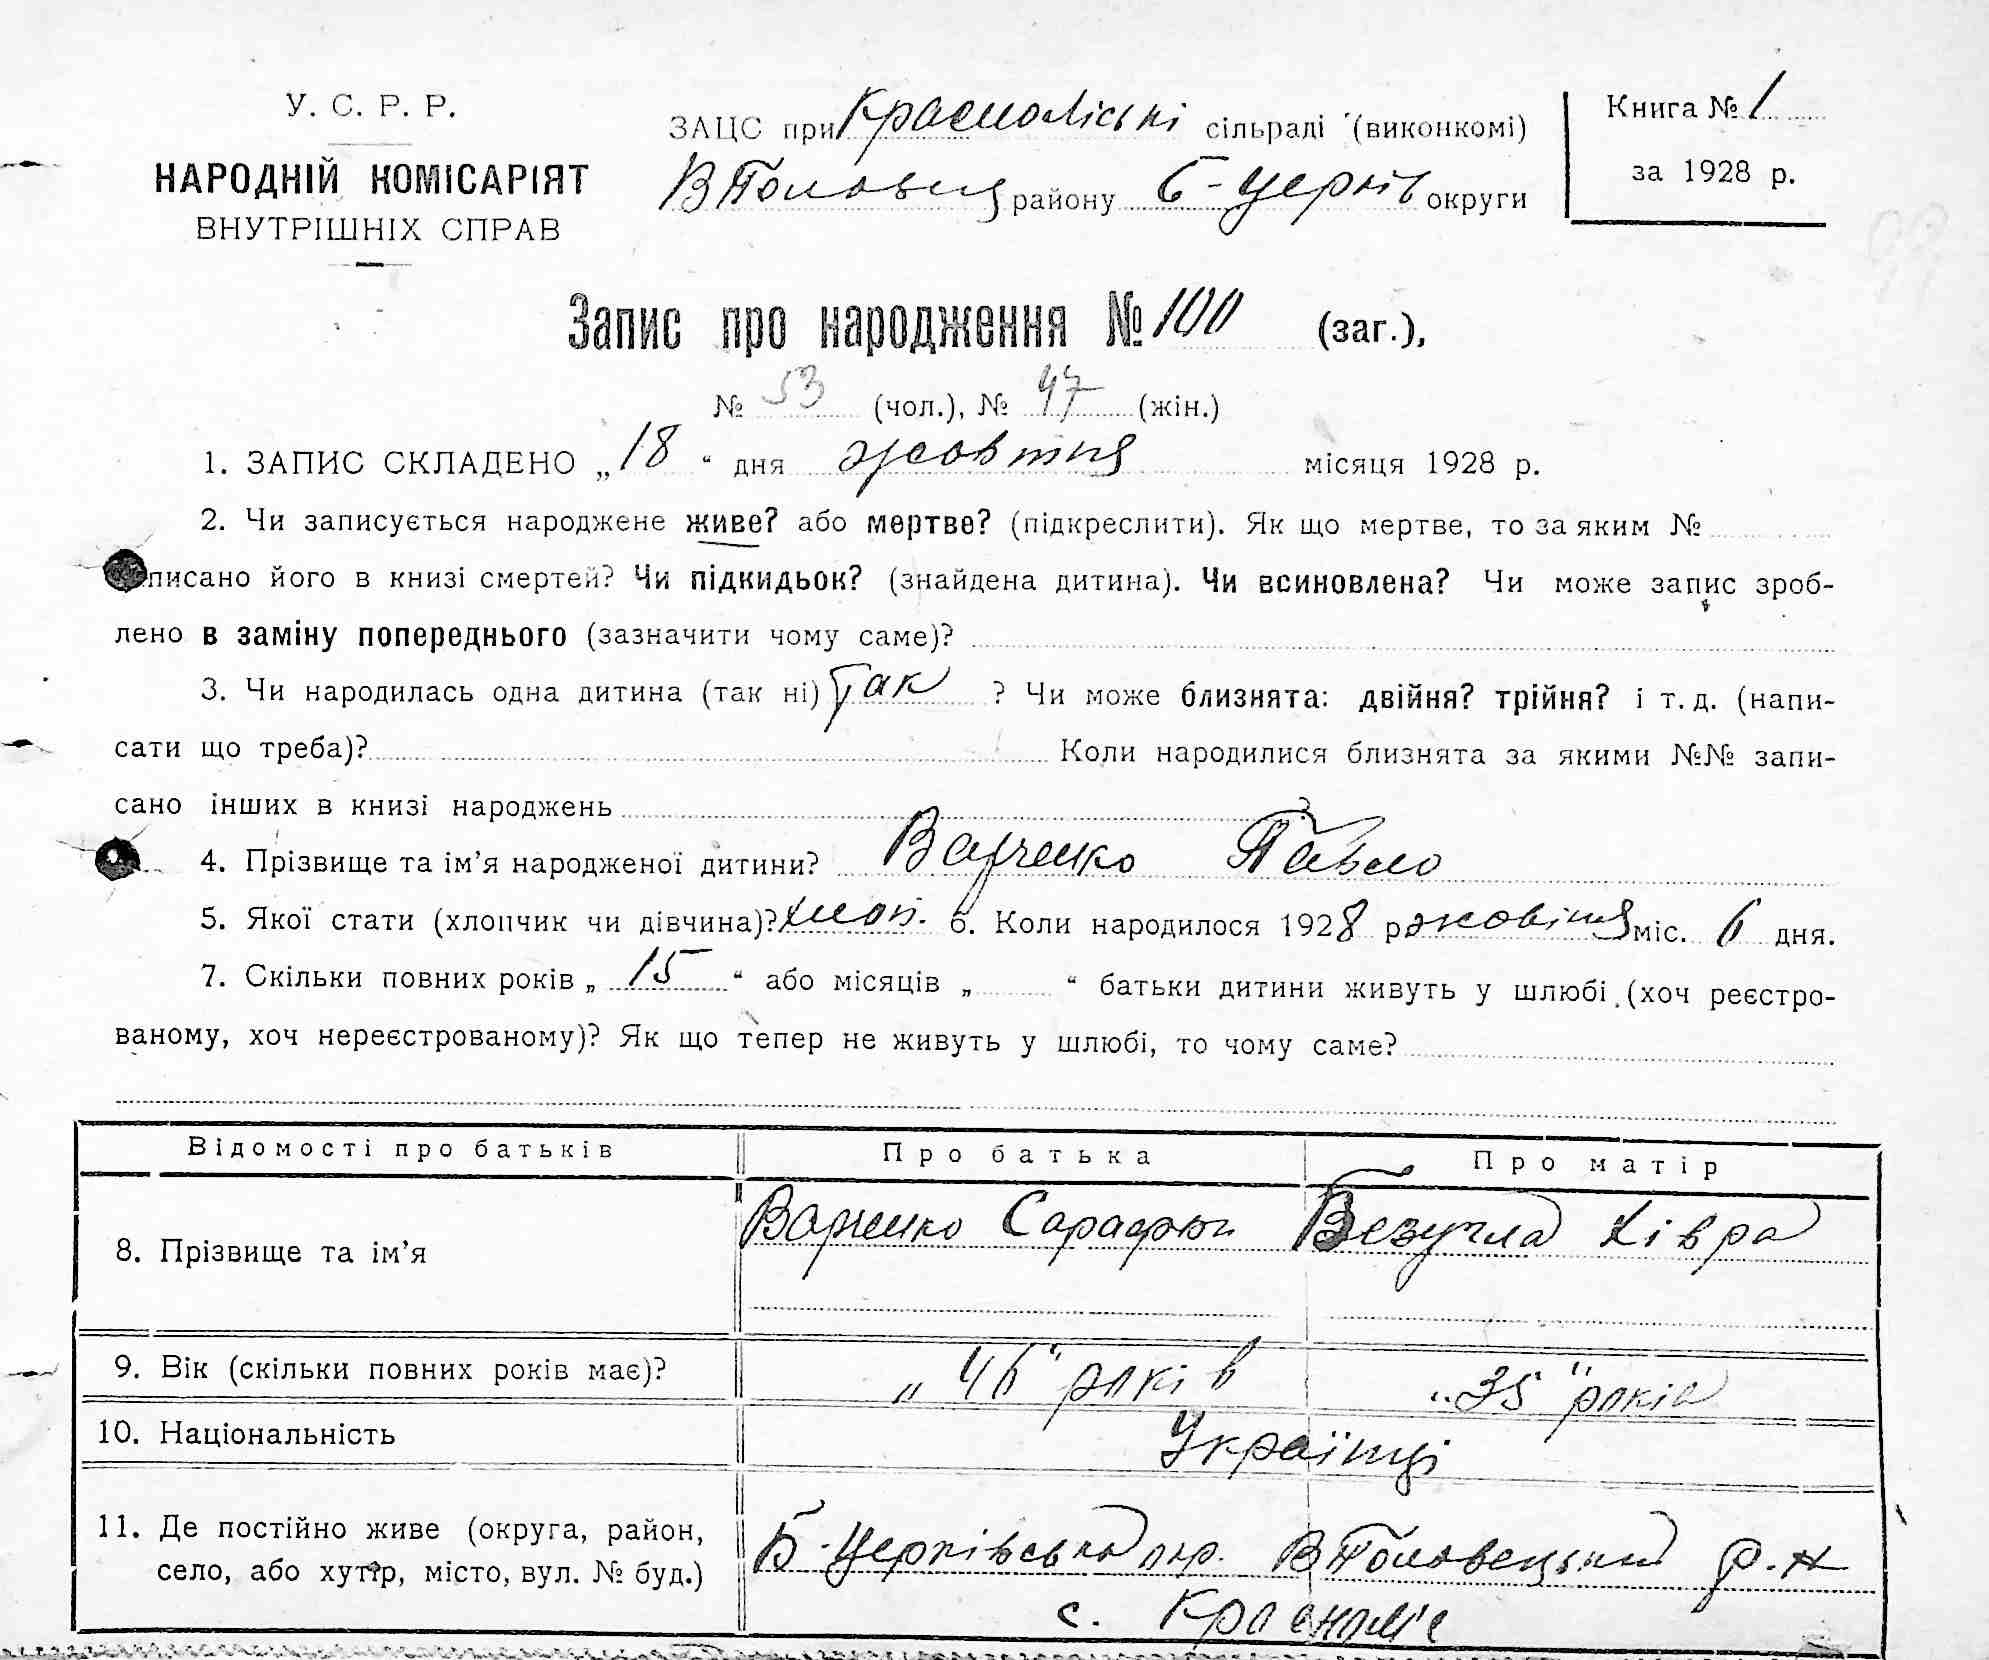 У. С. Р. Р.
НАРОДНІЙ КОМІСАРІЯТ
ВНУТРІШНІХ СПРАВ
ЗАЦС при Красноліські сільраді (виконкомі)
В Половец району Б-Церків округи
Книга № 1
за 1928 р.
Запис про народження № 100 (заг.),
№ 53 (чол.), № 47 (жін.)
1. ЗАПИС СКЛАДЕНО „18“ дня жовтня місяця 1928 р.
2. Чи записується народжене живе? або мертве? (підкреслити). Як що мертве, то за яким №
писано його в книзі смертей? Чи підкидьок? (знайдена дитина). Чи всиновлена? Чи може запис зроб-
лено в заміну попереднього (зазначити чому саме)?
3. Чи народилась одна дитина (так ні) Так ? Чи може близнята: двійня? трійня? і т. д. (напи-
сати що треба)? Коли народилися близнята за якими №№ запи-
сано інших в книзі народжень ?
4. Прізвище та ім’я народженої дитини? Варченко Павло
5. Якої стати (хлопчик чи дівчина)? хлоп. 6. Коли народилося 1928 р. жовтня міс. 6 дня.
7. Скільки повних років „ 15 “ або місяців „ “ батьки дитини живуть у шлюбі (хоч реєстро-
ваному, хоч нереєстрованому)? Як що тепер не живуть у шлюбі, то чому саме?
Відомості про батьків Про батька Про матір
8. Прізвище та ім’я Варченко Безугла Хівра
9. Вік (скільки повних років має)? „46“ років „35“ років
10. Національність Українці
11. Де постійно живе (округа, район,
село, або хутір, місто, вул. № буд.)
Б-Церківська окр. В Половецький р.н
с. Красноліс